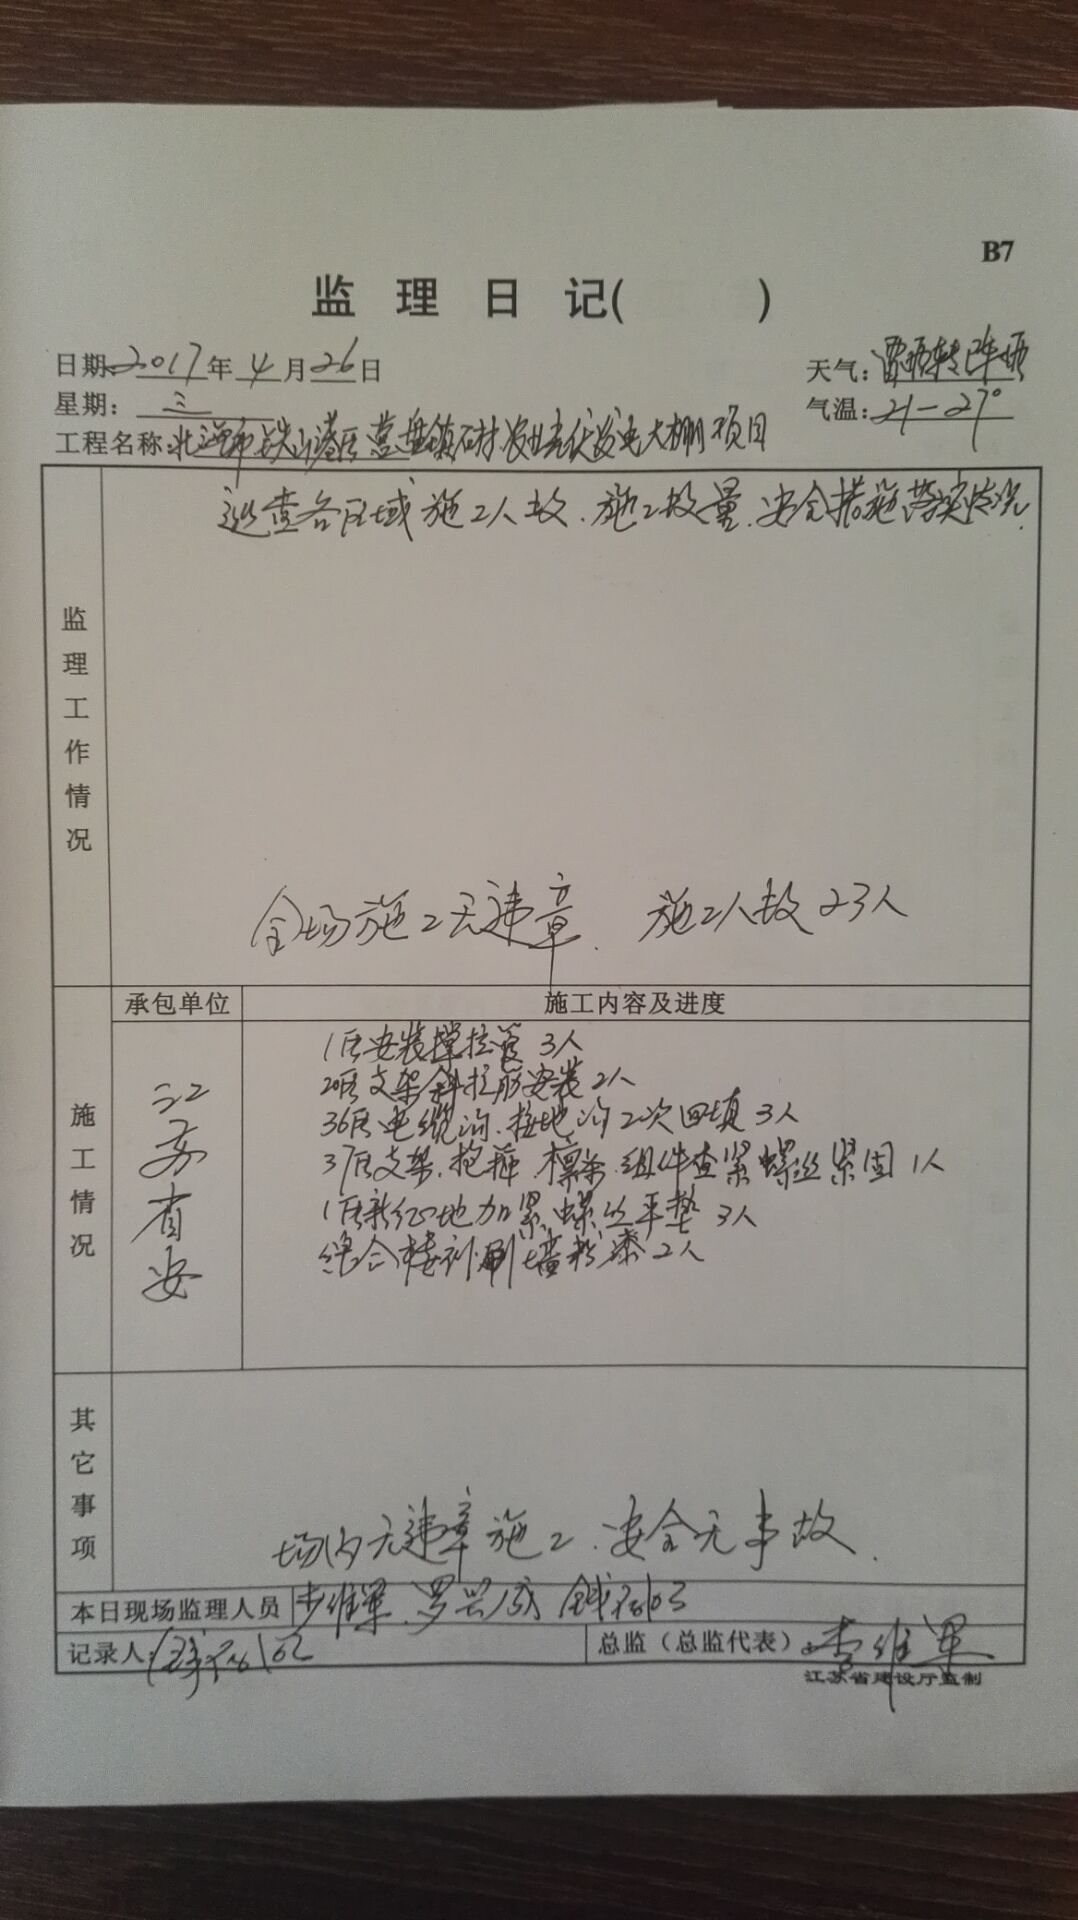 B7
监理日记( )
日期:2017年4月26日
天气:雷雨转中雨
星期:三
气温:21-27°
工程名称:北海市铁山港区营盘镇石村农业光伏发电大棚项目
监理工作情况
巡查各区域施工人数、施工质量、安全措施落实情况.
全场施工无违章. 施工人数23人
施工情况
承包单位
施工内容及进度
江苏省安
1区安装撑拉管 3人
20区支架斜拉筋安装2人
36区电缆沟、接地沟二次回填3人
37区支架、抱箍、檩条、组件查紧螺丝紧固1人
1区 地加紧螺丝平垫 3人
综合楼 刷墙 漆2人
其它事项
场内无违章施工、安全无事故.
本日现场监理人员
李维军、罗兴成
记录人:
总监(总监代表):李维军
江苏省建设厅监制